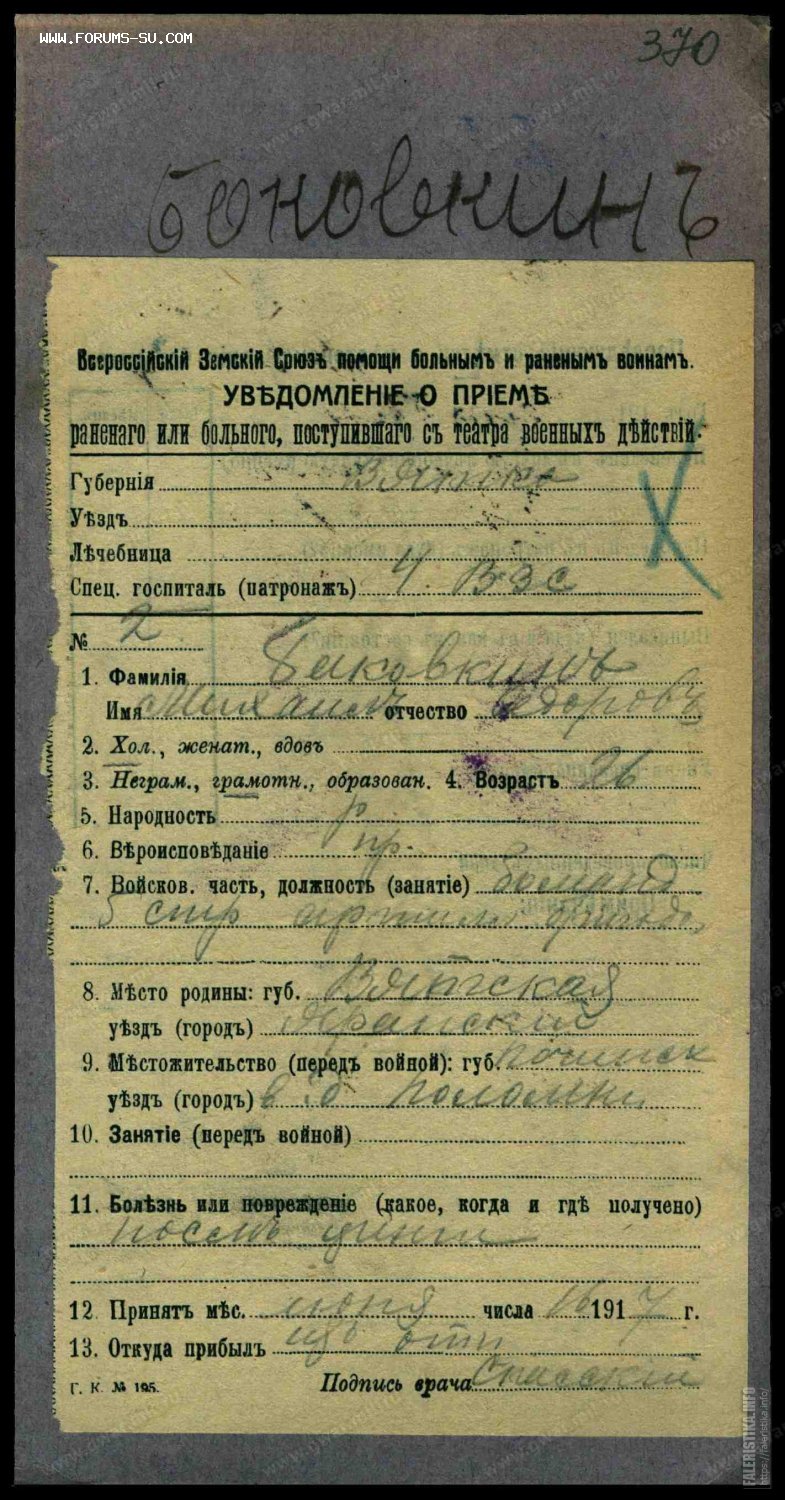 WWW.FORUMS-SU.COM
370
Боковкинъ
Всероссійскій Земскій Союзъ помощи больнымъ и раненымъ воинамъ.
УВѢДОМЛЕНІЕ О ПРІЕМѢ
раненаго или больного, поступившаго съ театра военныхъ дѣйствій.
Губернія Вятска
Уѣздъ
Лѣчебница
Спец. госпиталь (патронажъ) 4. ВЗС
№ 2
1. Фамилія Баковкинъ
Имя Михаилъ отчество Федоровъ
2. Хол., женат., вдовъ
3. Неграм., грамотн., образован. 4. Возрастъ 26
5. Народность р
6. Вѣроисповѣданіе пр.
7. Войсков. часть, должность (занятіе)
5 стр артилл бригады
8. Мѣсто родины: губ. Вятская
уѣздъ (городъ) Яранскій
9. Мѣстожительство (передъ войной): губ. починок
уѣздъ (городъ)
10. Занятіе (передъ войной)
11. Болѣзнь или поврежденіе (какое, когда и гдѣ получено)
послѣ цинги
12 Принятъ мѣс. июня числа 16 1917 г.
13. Откуда прибылъ изъ
Г. К. № 195. Подпись врача Спасский
FALERISTIKA.INFO
https://faleristika.info/